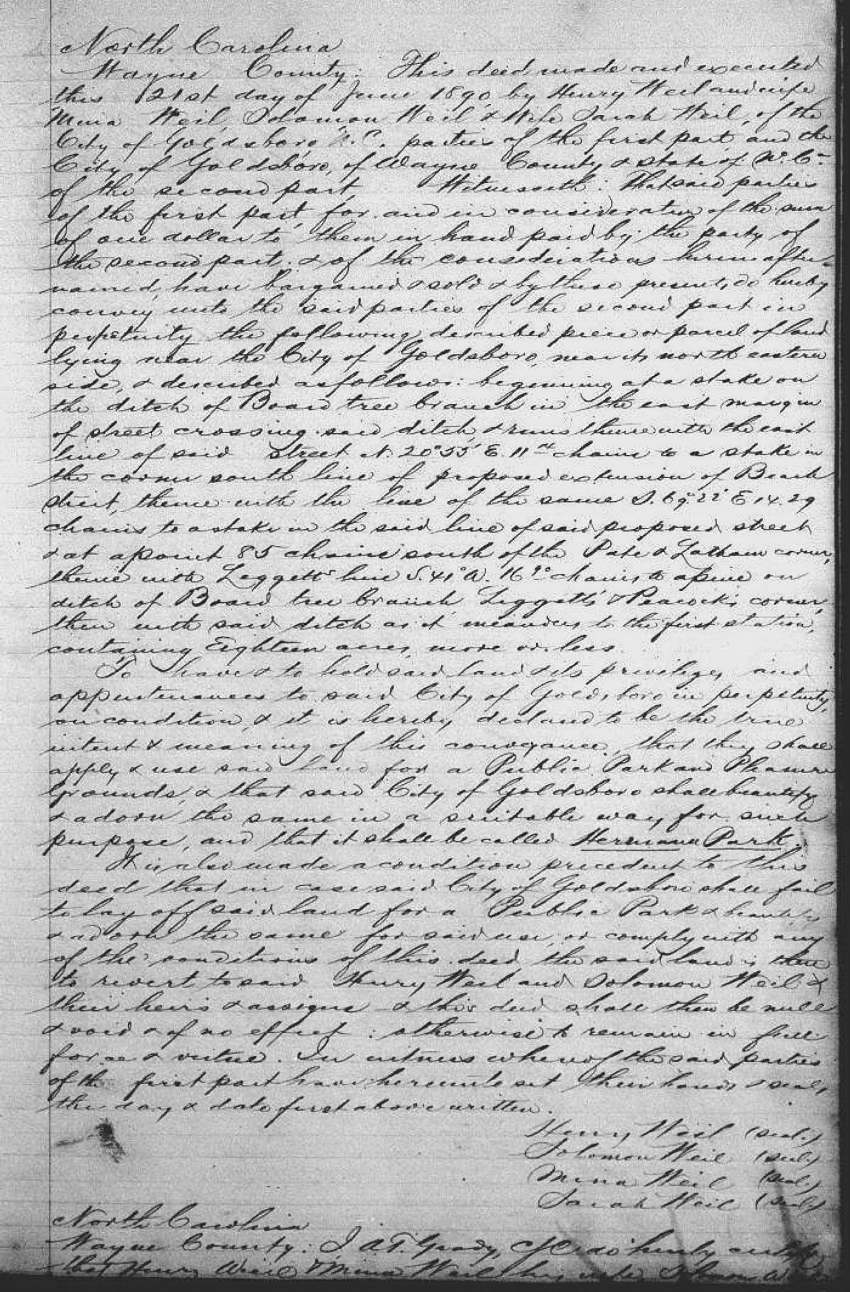 North Carolina
Wayne County: This deed made and executed
this 21st day of June 1890 by Henry Weil and wife
Mina Weil, Solomon Weil & Wife Sarah Weil, of the
City of Goldsboro, N.C. parties of the first part and the
City of Goldsboro, of Wayne County & state of N. Ca.
of the second part, Witnesseth: That said parties
of the first part, for and in consideration of the sum
of one dollar to them in hand paid by the party of
the second part, & of the considerations herein after
named, have bargained & sold & by these presents, do hereby
convey unto the said parties of the second part in
perpetuity the following described piece or parcel of land
lying near the City of Goldsboro, near its north eastern
side, & described as follows: beginning at a stake on
the ditch of Board tree branch in the east margin
of street crossing said ditch, & runs thence with the east
line of said Street N. 20° 55' E. 11 chains to a stake in
the corner south line of proposed extension of Beach
Street, thence with the line of the same S. 69° 22' E 14.29
chains to a stake in the said line of said proposed street
& at a point 85 chains south of the Pate & Latham corner,
thence with Leggett's line S. 41° W. 16 chains to a pine on
ditch of Board tree branch Leggett's & Peacock's corner,
then with said ditch as it meanders to the first station,
containing Eighteen acres, more or less.
To have & to hold said land & its privileges and
appurtenances to said City of Goldsboro in perpetuity,
on condition, & it is hereby declared to be the true
intent & meaning of this conveyance, that they shall
apply & use said land for a Public Park and Pleasure
Grounds, & that said City of Goldsboro shall beautify
& adorn the same in a suitable way for such
purpose, and that it shall be called Hermann Park.
It is also made a condition precedent to this
deed that in case said City of Goldsboro shall fail
to lay off said land for a Public Park & beautify
& adorn the same for said use, or comply with any
of the conditions of this deed, the said land is then
to revert to said Henry Weil and Solomon Weil &
their heirs & assigns & this deed shall then be null
& void & of no effect: otherwise to remain in full
force & virtue. In witness whereof the said parties
of the first part have hereunto set their hands & seals
the day & date first above written.
Henry Weil (seal)
Solomon Weil (seal)
Mina Weil (seal)
Sarah Weil (seal)
North Carolina
Wayne County: I A.T. Grady, CSC do hereby certify
that Henry Weil & Mina Weil his wife, Solomon Weil